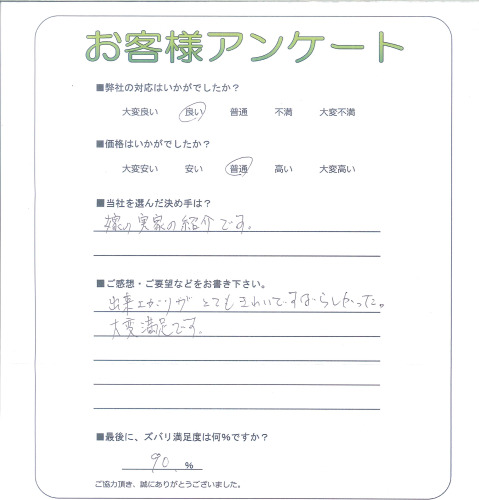 お客様アンケート
■弊社の対応はいかがでしたか？
大変良い 良い 普通 不満 大変不満
■価格はいかがでしたか？
大変安い 安い 普通 高い 大変高い
■当社を選んだ決め手は？
嫁の実家の紹介です。
■ご感想・ご要望などをお書き下さい。
出来上がりがとてもきれいですばらしかった。
大変満足です。
■最後に、ズバリ満足度は何％ですか？
90 ％
ご協力頂き、誠にありがとうございました。